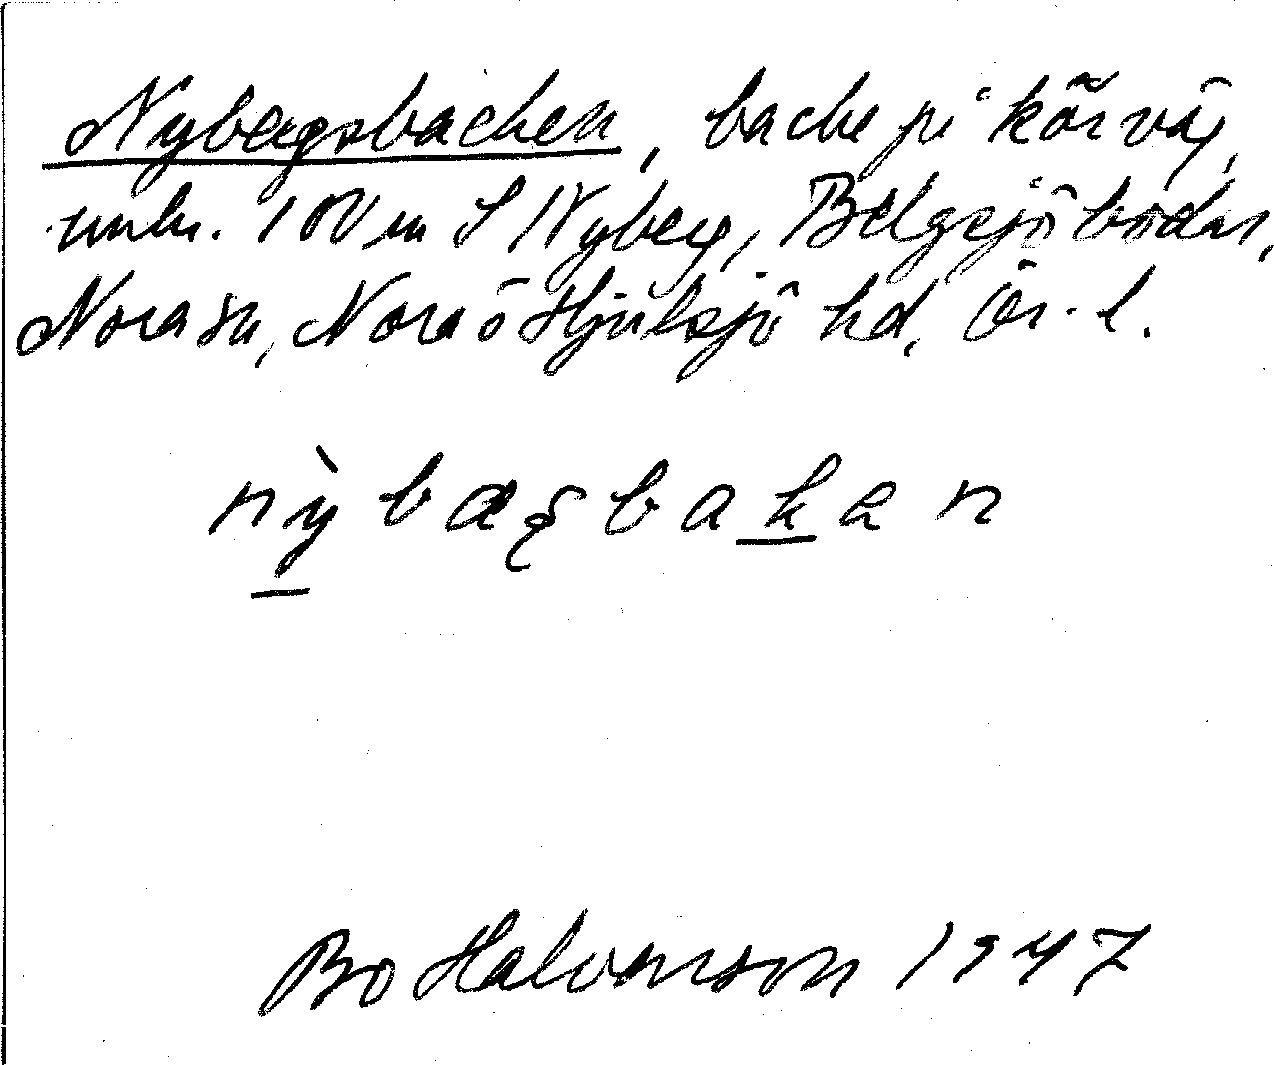 Nybergsbacken, backe på körväg,
umkr. 100 m S Nyberg, Bälgsjöbodar,
Nora sn, Nora o Hjulsjö hd, Ör. l.
bakan
Bo Halvarson 1947